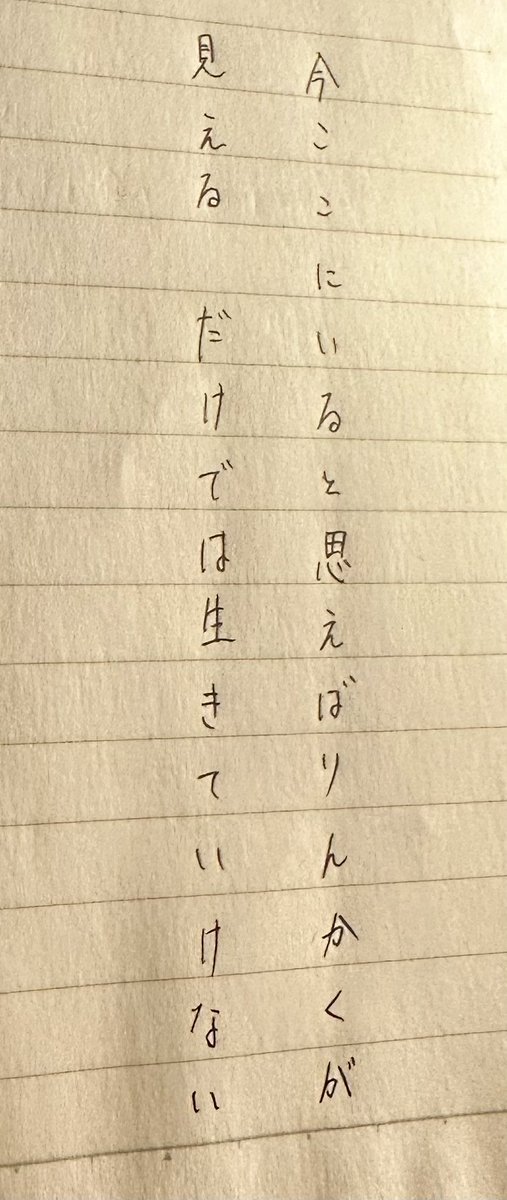 今ここにいると思えばりんかくが
見える　だけでは生きていけない